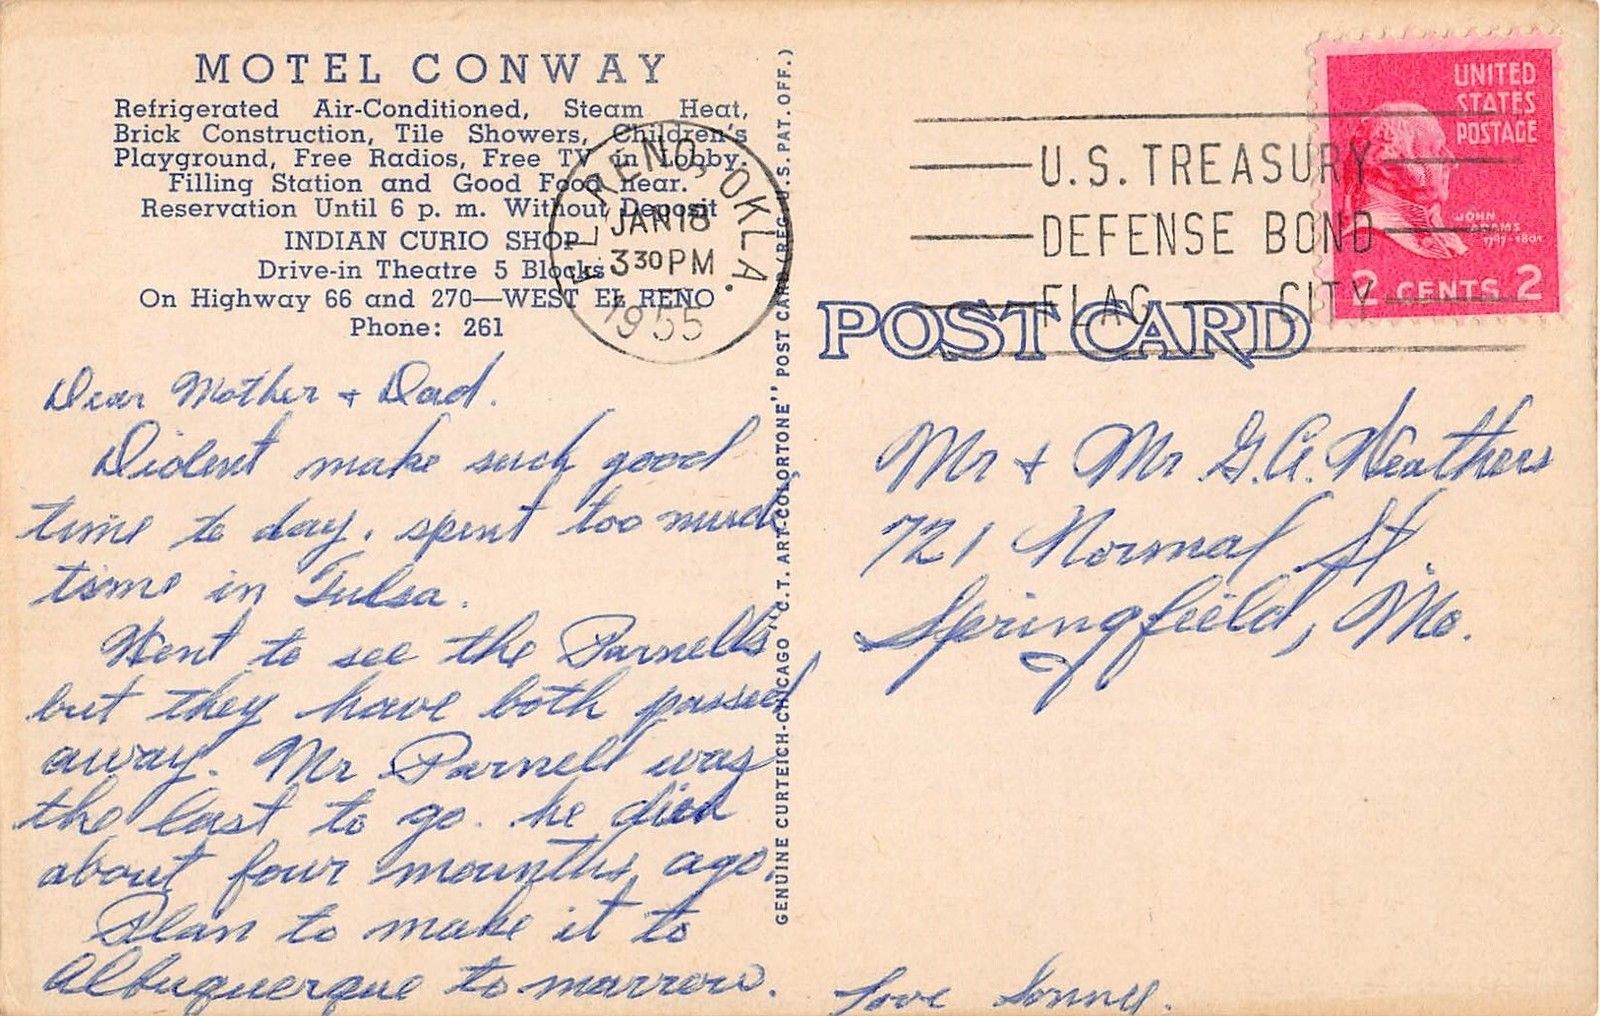 MOTEL CONWAY
Refrigerated Air-Conditioned, Steam Heat,
Brick Construction, Tile Showers, Children's
Playground, Free Radios, Free TV in Lobby.
Filling Station and Good Food near.
Reservation Until 6 p. m. Without Deposit
INDIAN CURIO SHOP
Drive-in Theatre 5 Blocks
On Highway 66 and 270—WEST EL RENO
Phone: 261
EL RENO, OKLA.
JAN 18
3 30 PM
1955
Dear Mother + Dad.
Dident make such good
time to day. spent too much
time in Tulsa.
Went to see the Parnells
but they have both passed
away. Mr Parnell was
the last to go. he died
about four mounths ago.
Plan to make it to
Albuquerque to marrow.
Love Sonny.
GENUINE CURTEICH-CHICAGO "C.T. ART-COLORTONE" POST CARD (REG. U.S. PAT. OFF.)
U.S. TREASURY
DEFENSE BOND
FLAG CITY
UNITED
STATES
POSTAGE
JOHN
ADAMS
1797-1801
2 CENTS 2
POST CARD
Mr + Mr G.A. Weathers
721 Normal St.
Springfield, Mo.